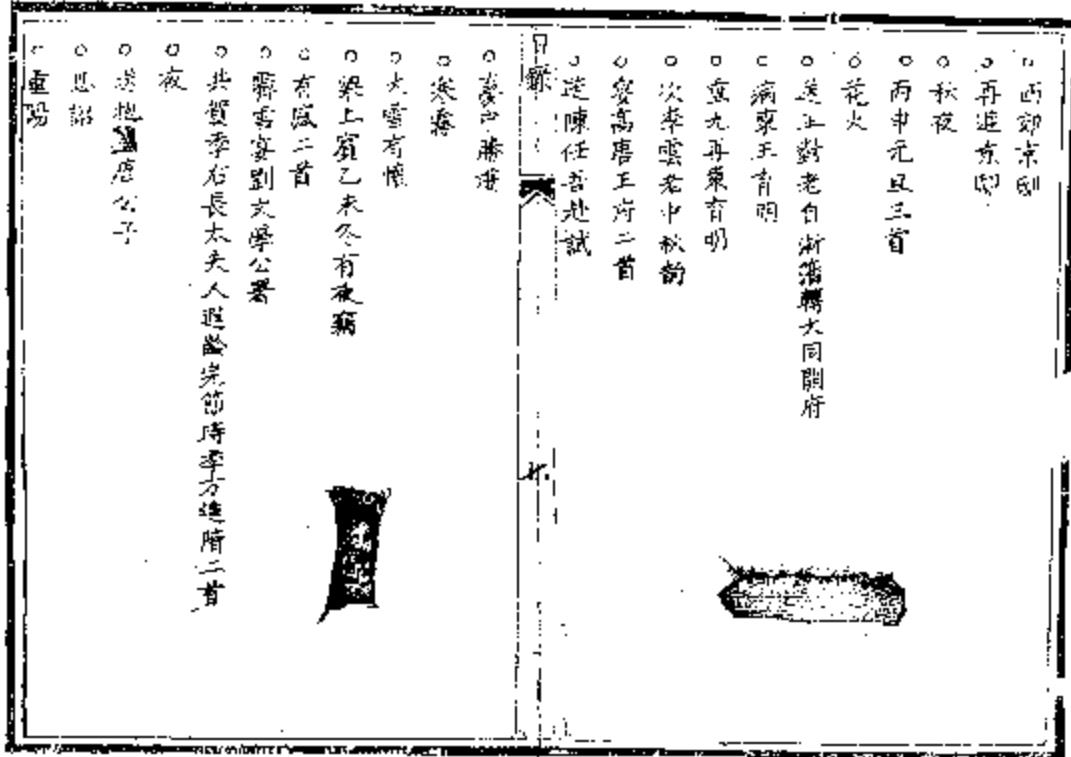 西郊京邸
再遊京邸
秋夜
丙申元旦三首
花火
送王對老自浙藩轉大同開府
病柬王育明
重九再柬育明
次李雲老中秋韵
登高唐王府二首
送陳任吾赴試
目錄
七
寒
大雪有懷
梁上賓乙未冬有夜竊
有感二首
霽雪宴劉文學公署
共賀季右長太夫人遐齡完節時季方進階二首
夜
送 公子
思歸
重陽